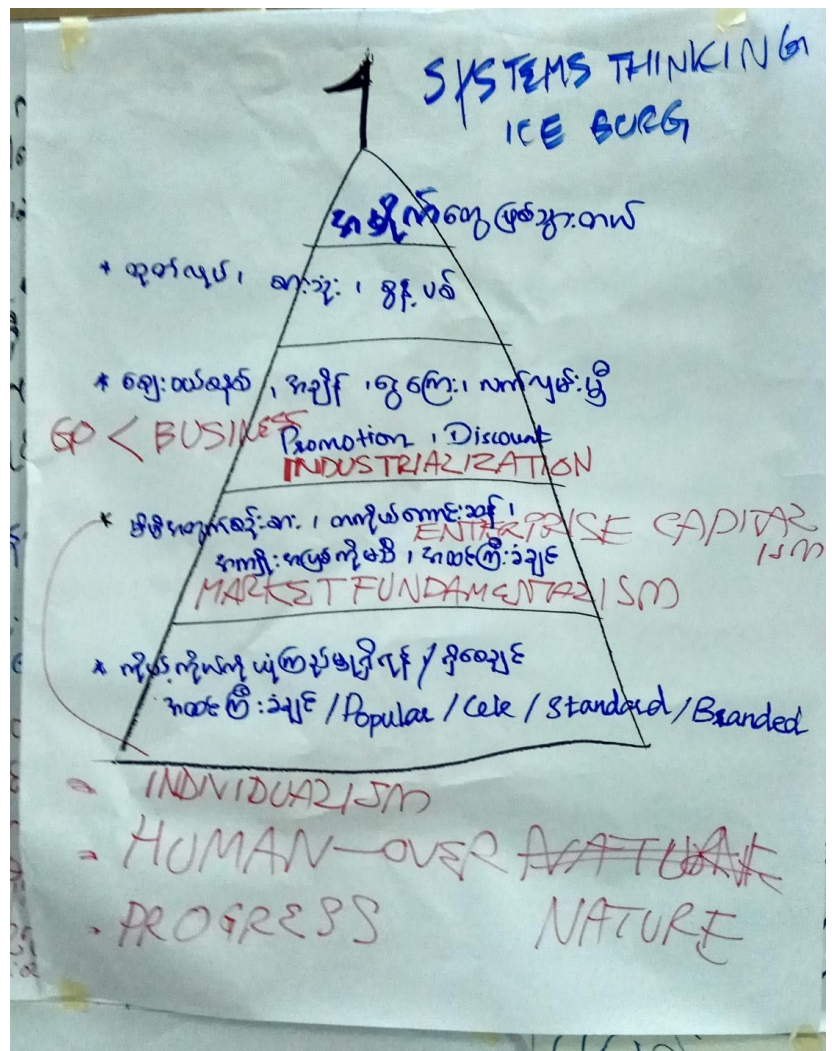 SYSTEMS THINKING
ICE BURG
အမှိုက်တွေ ဖြစ်သွားတယ်
* ထုတ်လုပ်၊ စားသုံး၊ စွန့်ပစ်
* ဈေးဝယ်စနစ်၊ အချိန်၊ ငွေကြေး၊ လက်လှမ်းမှီ
GD < BUSINESS
Promotion၊ Discount
INDUSTRIALIZATION
* မိမိအတွက်စဉ်းစား၊ တကိုယ်ကောင်းဆန်၊
ENTERPRISE CAPITALISM
အကျိုးအမြစ်ကိုမသိ၊ အထင်ကြီးခံချင်
MARKET FUNDAMENTALISM
* ကိုယ့်ကိုယ်ကို ယုံကြည်မှုရှိရန် / ရှိစေချင်
အထင်ကြီးခံချင် / Popular / Cele / Standard / Branded
- INDIVIDUALISM
- HUMAN-OVER NATURE
- PROGRESS NATURE